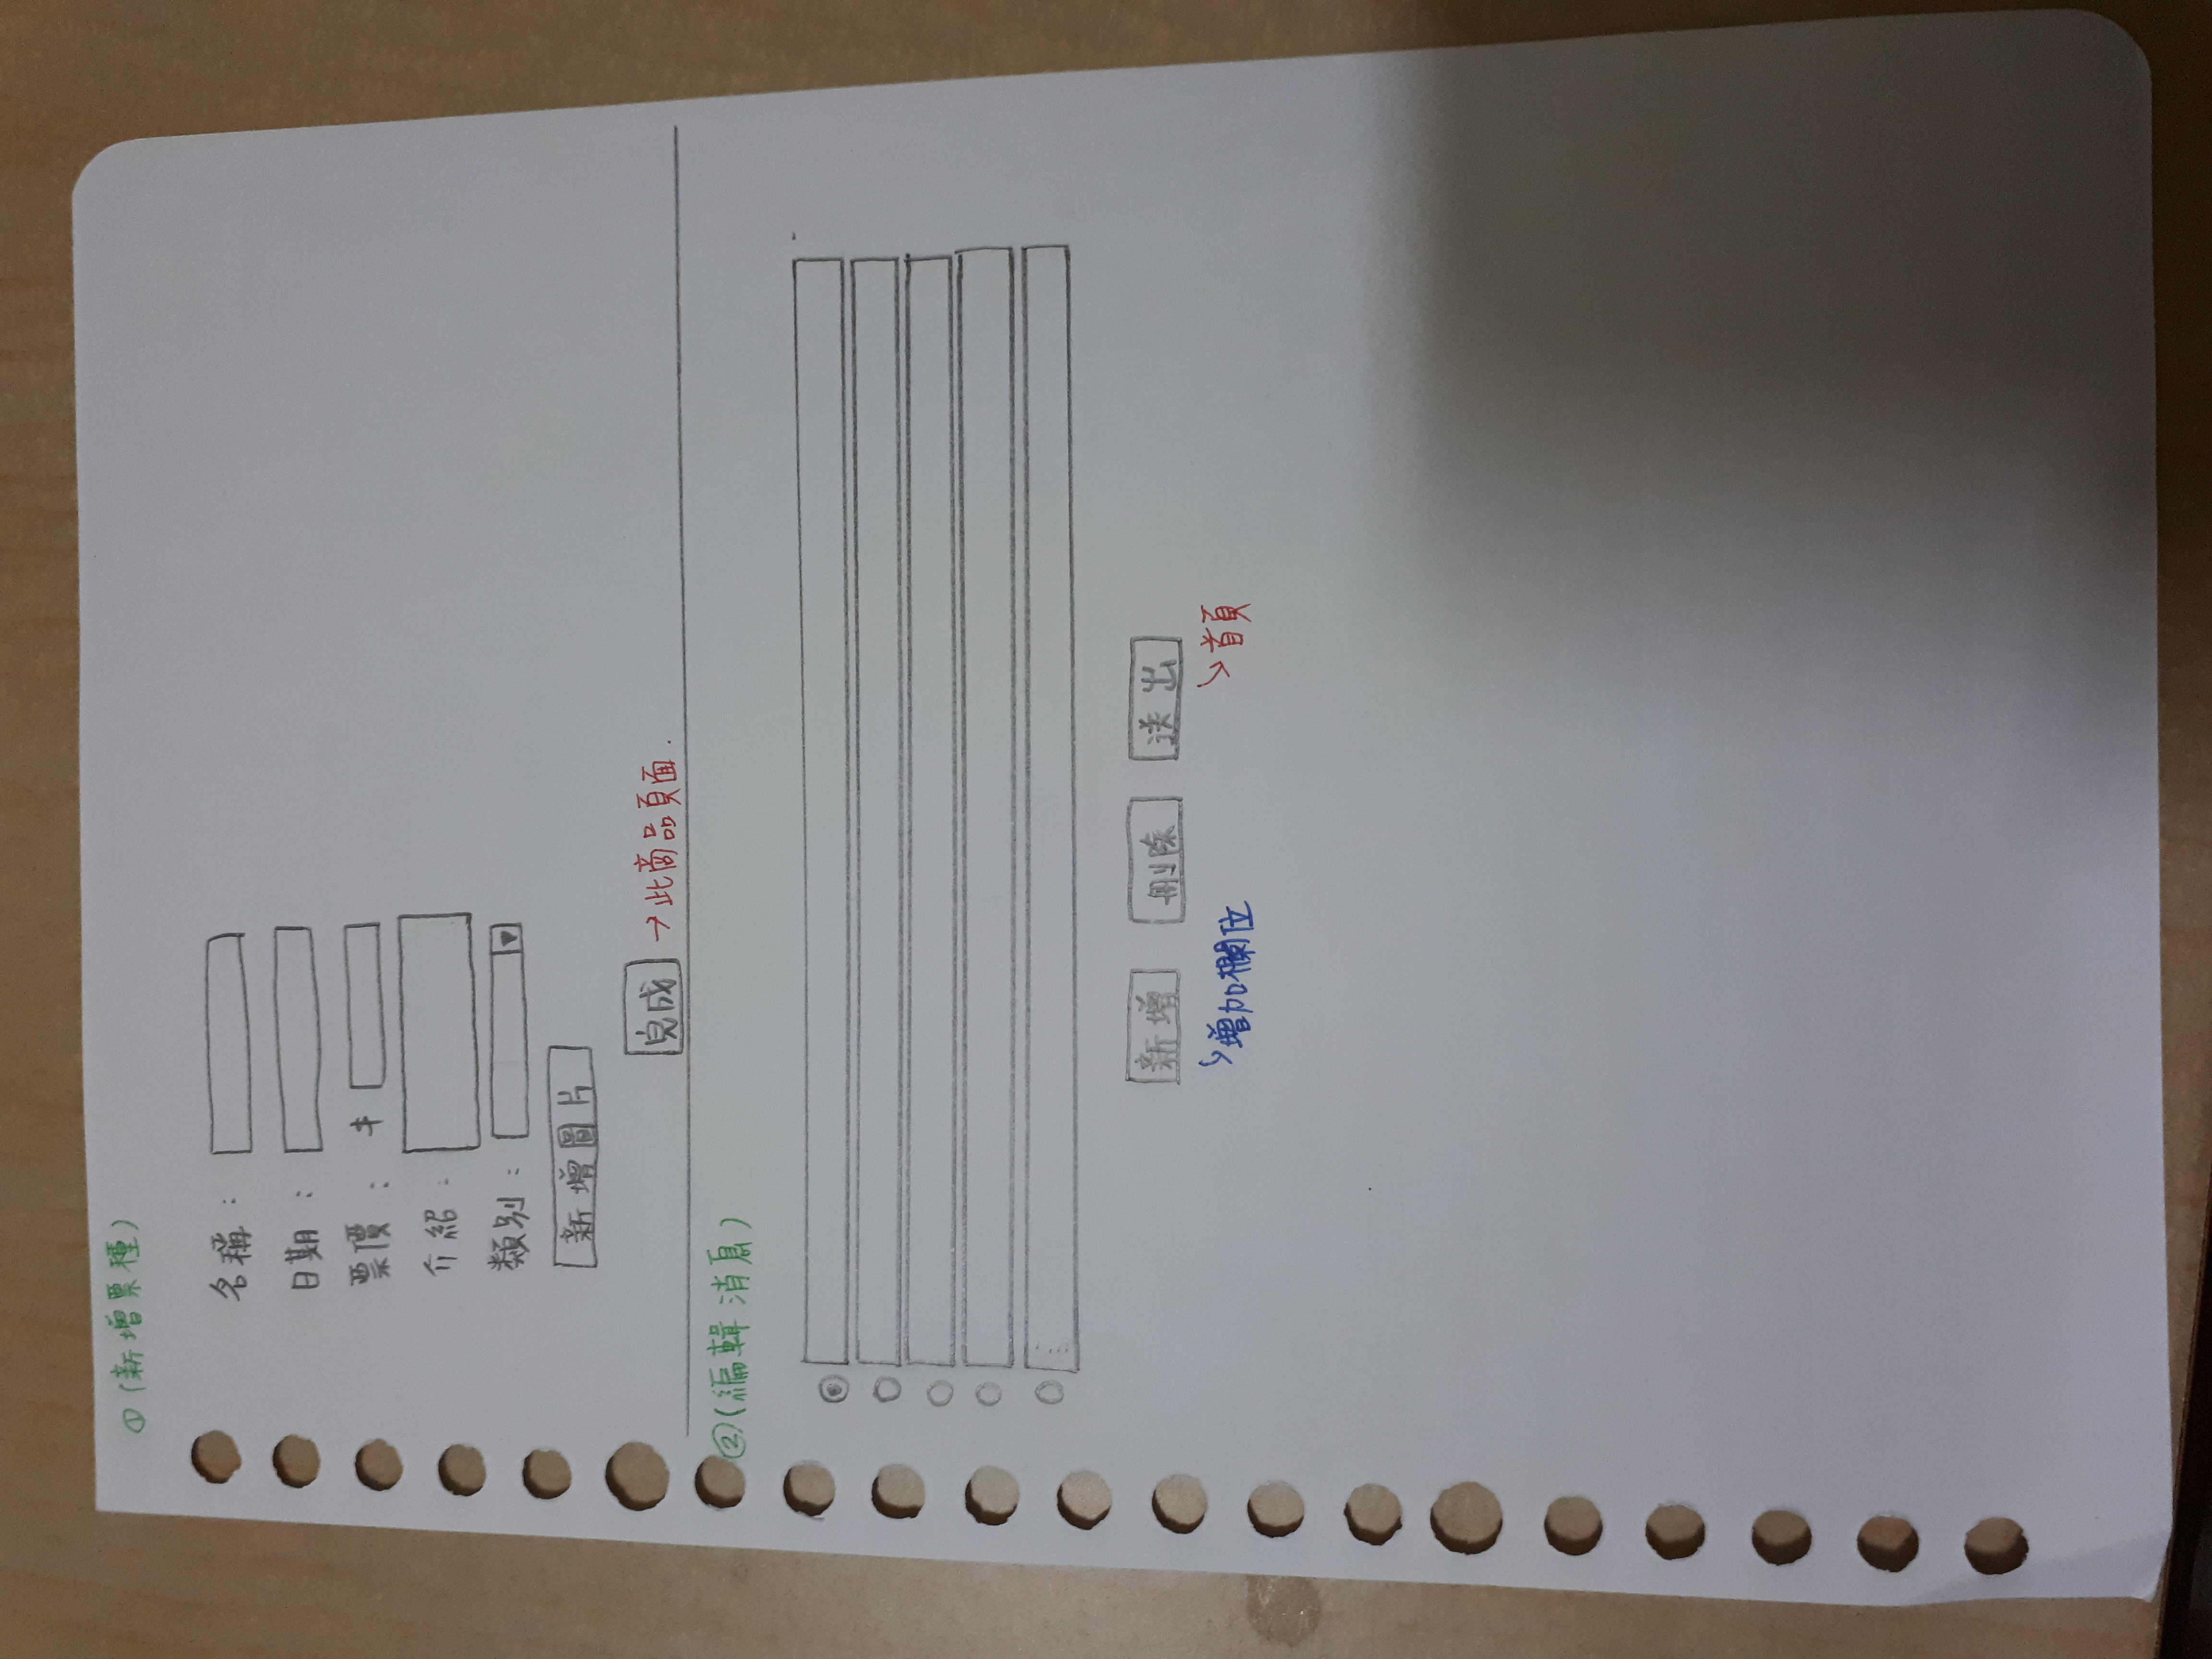 ①(新增票種)
名稱：
日期：
票價： $
介紹：
類別： ▼
新增圖片
完成 →此商品頁面.
②(編輯消息)
新增 刪除 送出
↳增加欄位 ↘首頁